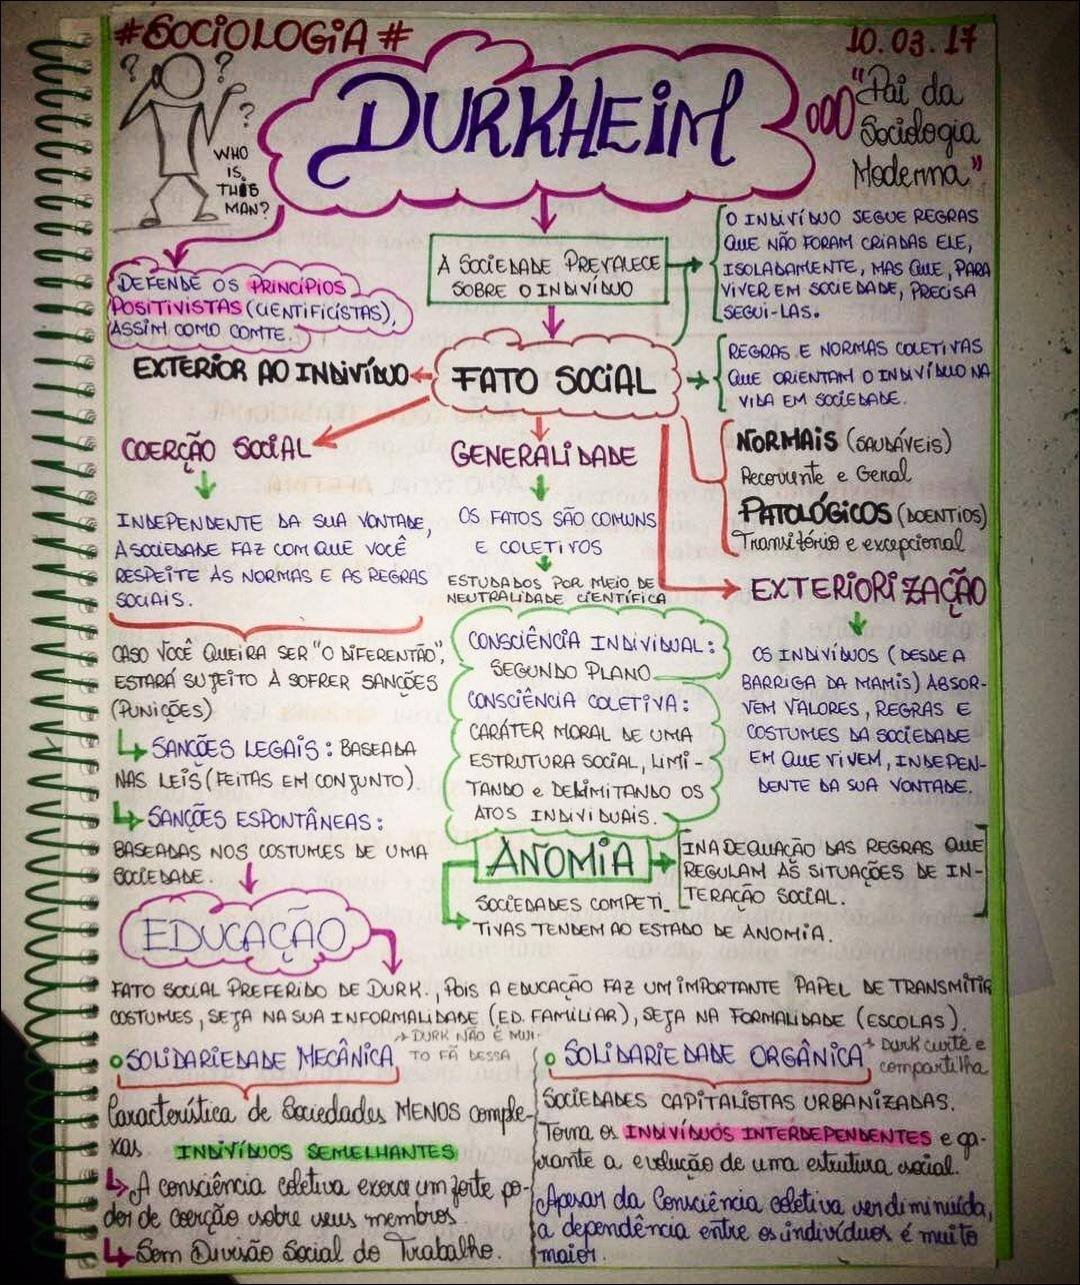 #SOCIOLOGIA#
10.03.17
? ? ?
WHO
IS
THIS
MAN?
DURKHEIM
"Pai da
Sociologia
Moderna"
DEFENDE OS PRINCÍPIOS
POSITIVISTAS (CIENTIFICÍSTAS),
ASSIM COMO COMTE.
A SOCIEDADE PREVALECE
SOBRE O INDIVÍDUO
O INDIVÍDUO SEGUE REGRAS
QUE NÃO FORAM CRIADAS ELE,
ISOLADAMENTE, MAS QUE, PARA
VIVER EM SOCIEDADE, PRECISA
SEGUI-LAS.
EXTERIOR AO INDIVÍDUO
FATO SOCIAL
REGRAS E NORMAS COLETIVAS
QUE ORIENTAM O INDIVÍDUO NA
VIDA EM SOCIEDADE.
NORMAIS (SAUDÁVEIS)
Recorrente e Geral
PATOLÓGICOS (DOENTIOS)
Transitório e excepcional
COERÇÃO SOCIAL
INDEPENDENTE DA SUA VONTADE,
A SOCIEDADE FAZ COM QUE VOCÊ
RESPEITE AS NORMAS E AS REGRAS
SOCIAIS.
CASO VOCÊ QUEIRA SER "O DIFERENTÃO",
ESTARÁ SUJEITO À SOFRER SANÇÕES
(PUNIÇÕES)
SANÇÕES LEGAIS: BASEADA
NAS LEIS (FEITAS EM CONJUNTO).
SANÇÕES ESPONTÂNEAS:
BASEADAS NOS COSTUMES DE UMA
SOCIEDADE.
GENERALIDADE
OS FATOS SÃO COMUNS
E COLETIVOS
ESTUDADOS POR MEIO DE
NEUTRALIDADE CIENTÍFICA
CONSCIÊNCIA INDIVIDUAL:
SEGUNDO PLANO
CONSCIÊNCIA COLETIVA:
CARÁTER MORAL DE UMA
ESTRUTURA SOCIAL, LIMI-
TANDO e DELIMITANDO OS
ATOS INDIVIDUAIS.
EXTERIORIZAÇÃO
OS INDIVÍDUOS (DESDE A
BARRIGA DA MAMIS) ABSOR-
VEM VALORES, REGRAS E
COSTUMES DA SOCIEDADE
EM QUE VIVEM, INDEPEN-
DENTE DA SUA VONTADE.
ANOMIA
INADEQUAÇÃO DAS REGRAS QUE
REGULAM AS SITUAÇÕES DE IN-
TERAÇÃO SOCIAL.
SOCIEDADES COMPETI-
TIVAS TENDEM AO ESTADO DE ANOMIA.
EDUCAÇÃO
FATO SOCIAL PREFERIDO DE DURK., POIS A EDUCAÇÃO FAZ UM IMPORTANTE PAPEL DE TRANSMITIR
COSTUMES, SEJA NA SUA INFORMALIDADE (ED. FAMILIAR), SEJA NA FORMALIDADE (ESCOLAS).
SOLIDARIEDADE MECÂNICA
DURK NÃO É MUI-
TO FÃ DESSA
Característica de Sociedades MENOS comple-
xas INDIVÍDUOS SEMELHANTES
A consciência coletiva exerce um forte po-
der de coerção sobre seus membros
Sem Divisão Social do Trabalho.
SOLIDARIEDADE ORGÂNICA
Durk curte e
compartilha
SOCIEDADES CAPITALISTAS URBANIZADAS.
Torna os INDIVÍDUOS INTERDEPENDENTES e ga-
rante a evolução de uma estrutura social.
Apesar da Consciência coletiva ser diminuída,
a dependência entre os indivíduos é muito
maior.